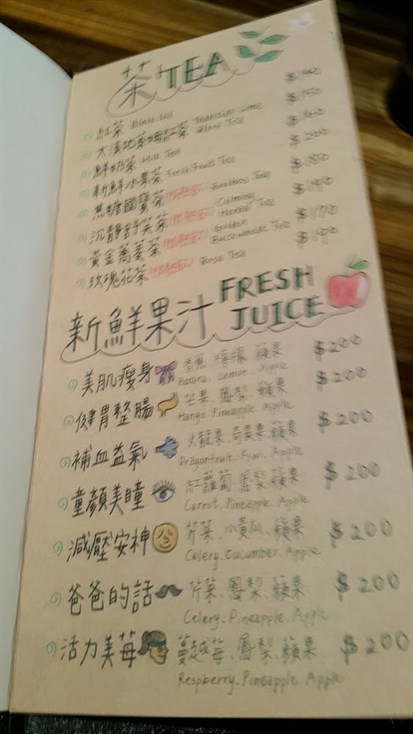 茶 TEA
紅茶 Black Tea $140
大溪地萊姆紅茶 Tahitian Lime Black Tea $150
鮮奶茶 Milk Tea $160
新鮮水果茶 Fresh Fruit Tea $200
黑糖國寶茶 Rooibos Tea $180
沉靜舒芙茶 Calming Herbal Tea $190
黃金蕎麥茶 Golden Buckwheat Tea $170
玫瑰花茶 Rose Tea $190
新鮮果汁 FRESH JUICE
美肌瘦身 香蕉、檸檬、蘋果 $200
Banana. Lemon. Apple
健胃整腸 芒果、鳳梨、蘋果 $200
Mango. Pineapple. Apple
補血益氣 火龍果、奇異果、蘋果 $200
Dragonfruit. Kiwi. Apple
童顏美瞳 紅蘿蔔、鳳梨、蘋果 $200
Carrot. Pineapple. Apple
減壓安神 芹菜、小黃瓜、蘋果 $200
Celery. Cucumber. Apple
爸爸的話 芹菜、鳳梨、蘋果 $200
Celery. Pineapple. Apple
活力美莓 蔓越莓、鳳梨、蘋果 $200
Respberry. Pineapple. Apple